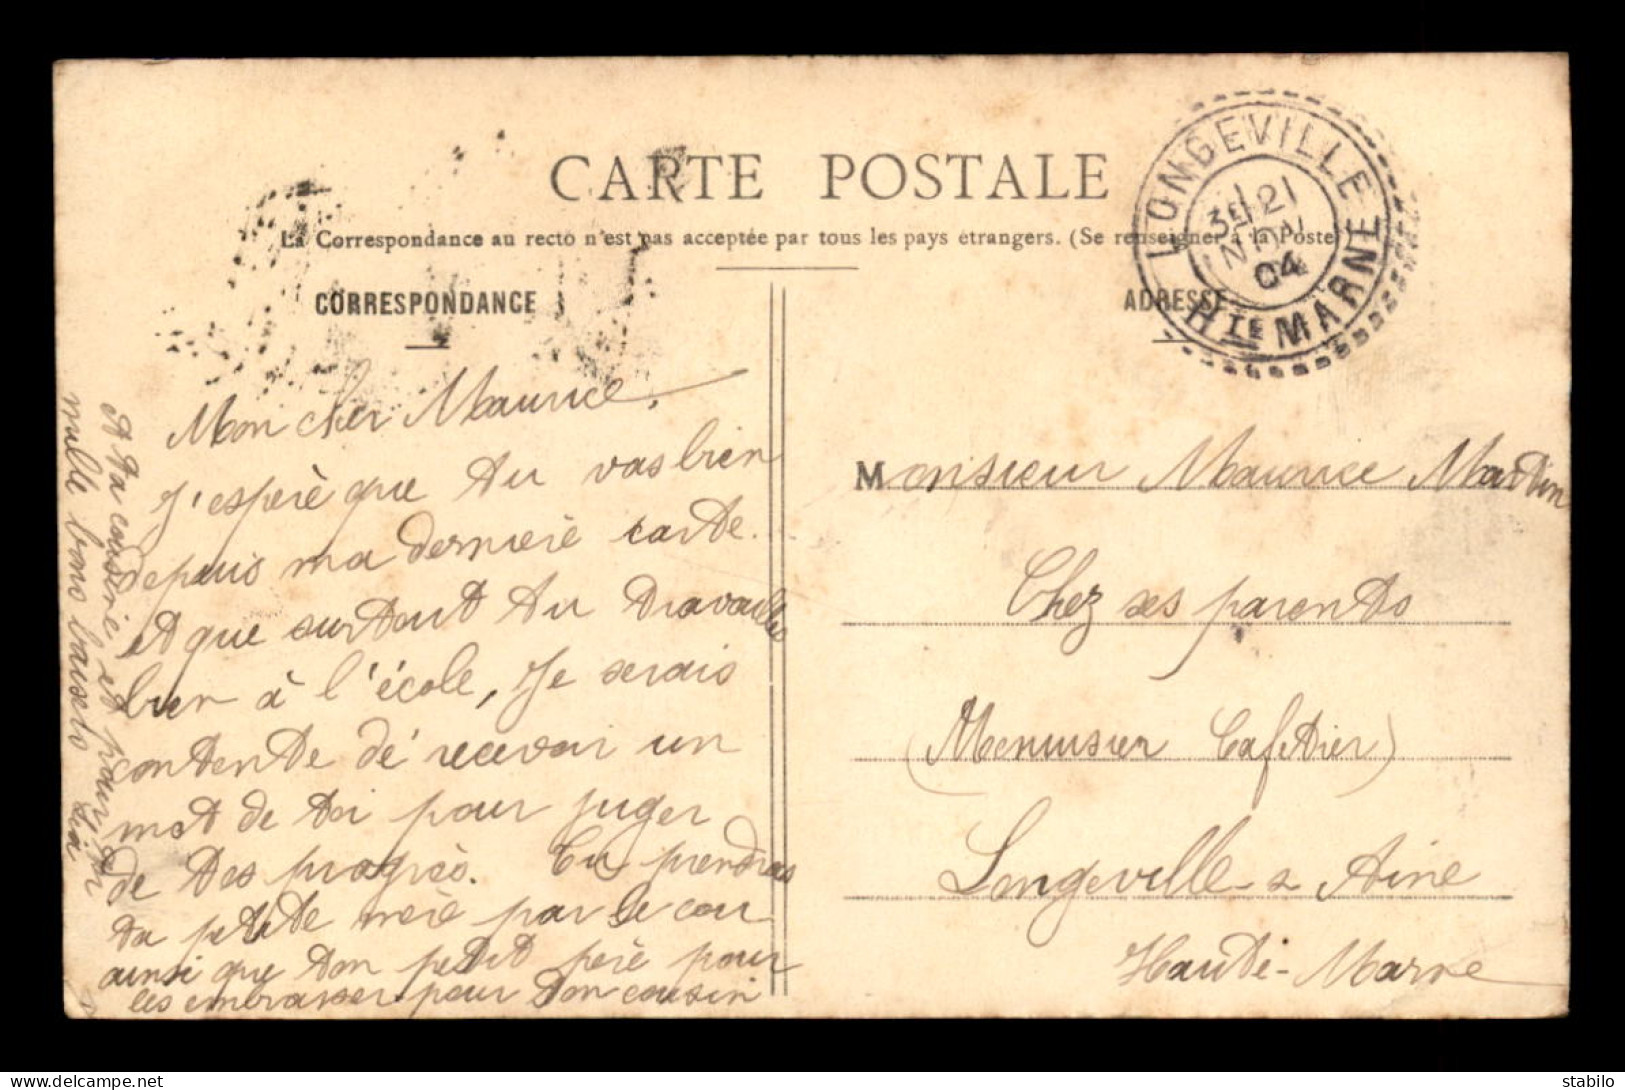 CARTE POSTALE
La Correspondance au recto n'est pas acceptée par tous les pays étrangers. (Se renseigner à la Poste)
CORRESPONDANCE
ADRESSE
LONGEVILLE
3E 21
NOV
04
HTE MARNE
Mon cher Maurice,
J'espère que tu vas bien
depuis ma dernière carte.
et que surtout tu travailles
bien à l'école, Je serais
contente de recevoir un
mot de toi pour juger
de tes progrès. Tu prendras
ta petite mère par le cou
ainsi que ton petit père pour
les embrasser pour ton cousin
et ta cousine et pour toi
mille bons baisers
Monsieur Maurice Martin
Chez ses parents
(Menuisier Cafetier)
Longeville s Aine
Haute-Marne
stabilo